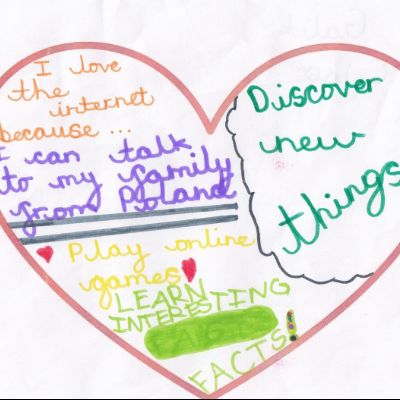 I love
the internet
because ...
I can talk
to my family
from Poland
Play online
games
LEARN
INTERESTING
FACTS!
Discover
new
things